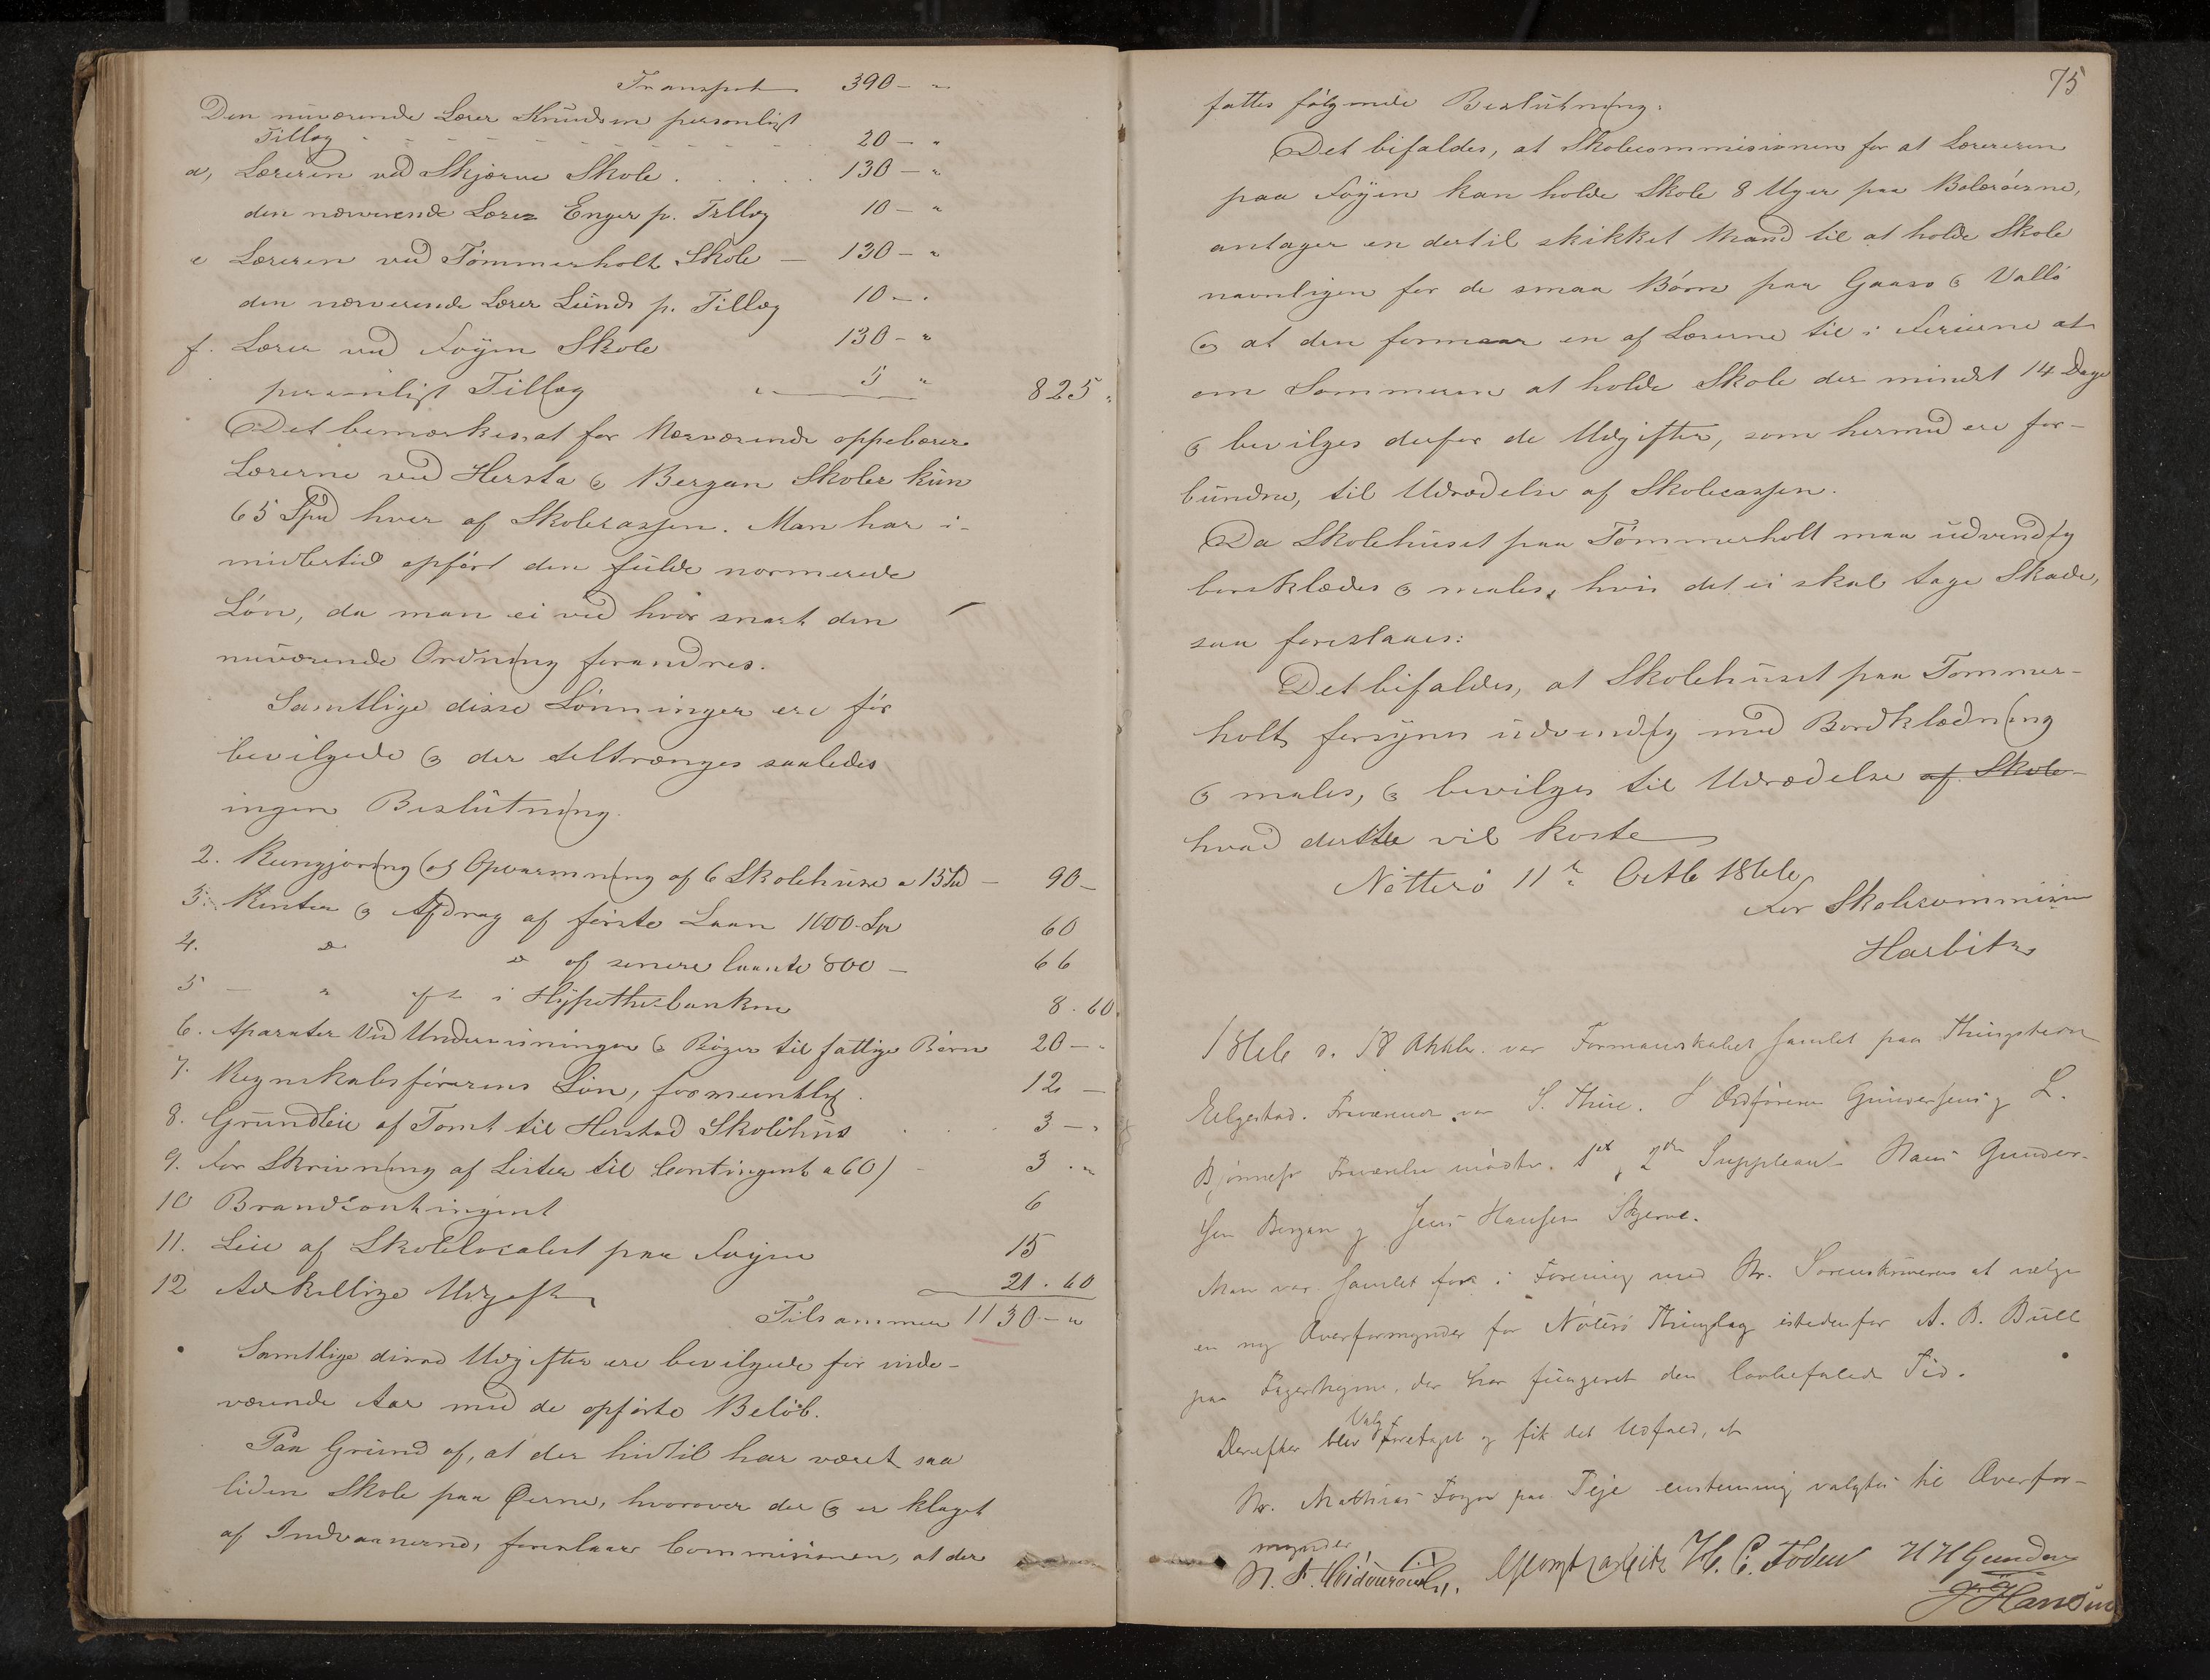 Transport 390 – "
Den nuværende Lærer Knudsen personligt
Tillæg 20 – "
d, Læreren ved Skjærve Skole . . . . 130 – "
den nærværende Lærer Enger p. Tillæg 10 – "
e Læreren ved Tömmerholt Skole – 130 – "
den nærværende Lærer Lunds p. Tillæg 10 – "
f. Lærer ved Föyen Skole 130 – "
personligt Tillæg 5 " 825 "
Det bemærkes, at for Nærværende oppebærer
Lærerne ved Hersta & Bergan Skoler kun
65 Spd hver af Skolecassen. Man har i-
midlertid opfört den fulde normerede
Lön, da man ei ved hvor snart den
nuværende Ordning forandres.
Samtlige disse Lönninger ere för
bevilgede & der tiltrænges saaledes
ingen Beslutning.
2. Rengjöring og Opvarmning af 6 Skolehuse a 15 Spd – 90 –
3. Renter & Afdrag af förste Laan 1000 Spd 60
4. do do af senere laante 800 – 66
5 – " i Hypothekbanken 8 . 60
6. Aparater ved Undervisningen & Böger til fattige Börn 20 – "
7. Regnskabsförerens Lön, formentlig . 12 –
8. Grundleie af Tomt til Herstad Skolehus . . . 3 – "
9. For Skrivning af Lister til Contingent a 60 / – 3 . "
10 Brandcontingent 6
11. Leie af Skolelocalet paa Föyen 15
12 Adskillige Udgifter 21 . 60
Tilsammen 1130 – "
Samtlige disse Udgifter ere bevilgede for inde-
værende Aar med de opförte Belöb.
Paa Grund af, at der hidtil har været saa
liden Skole paa Öerne, hvorover der & er klaget
af Indvaanerne, foreslaaer Commissionen, at der
75
fattes fölgende Beslutning:
Det bifaldes, at Skolecommissionen for at Læreren
paa Föyen kan holde Skole 8 Uger paa Bolæröerne,
antager en dertil skikket Mand til at holde Skole
navnligen for de smaa Börn paa Gaasö & Vallö
& at den formaar en af Lærerne til i Ferierne at
om Sommeren at holde Skole der mindst 14 Dage
& bevilges derfor de Udgifter, som hermed ere for-
bundne, til Udredelse af Skolecassen.
Da Skolehuset paa Tömmerholt maa udvendig
bordklædes & males, hvis det ei skal tage Skade,
saa foreslaaes:
Det bifaldes, at Skolehuset paa Tömmer-
holt forsynes udvendig med Bordklædning
& males, & bevilges til Udredelse af Skole-
hvad dette vil koste
Nötterö 11te Octb 1866
For Skolecommissionen
Harbitz
1866 d. 18 Oktbr. var Formandskabet samlet paa Thingstedet
Elgestad. Fraværende var S. Thue. I Ordförerens Gundersens og L.
Björnes Fraværelse mödte 1st og 2den Suppleant Hans Gunder-
sen Bergan og Jens Hansen Skjerve.
Man var samlet for i Forening med Hr. Sorenskriveren at vælge
en ny Overformynder for Nöterö Thinglag istedenfor A. B. Bull
paa Fagerheyen, der har fungeret den lovbefalede Tid.
Derefter blev Valg foretaget og fik det Udfald, at
Hr. Mathias Foyn paa Teje enstemmig valgtes til Overfor-
mynder
Georg Harbitz H. C. Foden H H Gundersen
J. Hansen